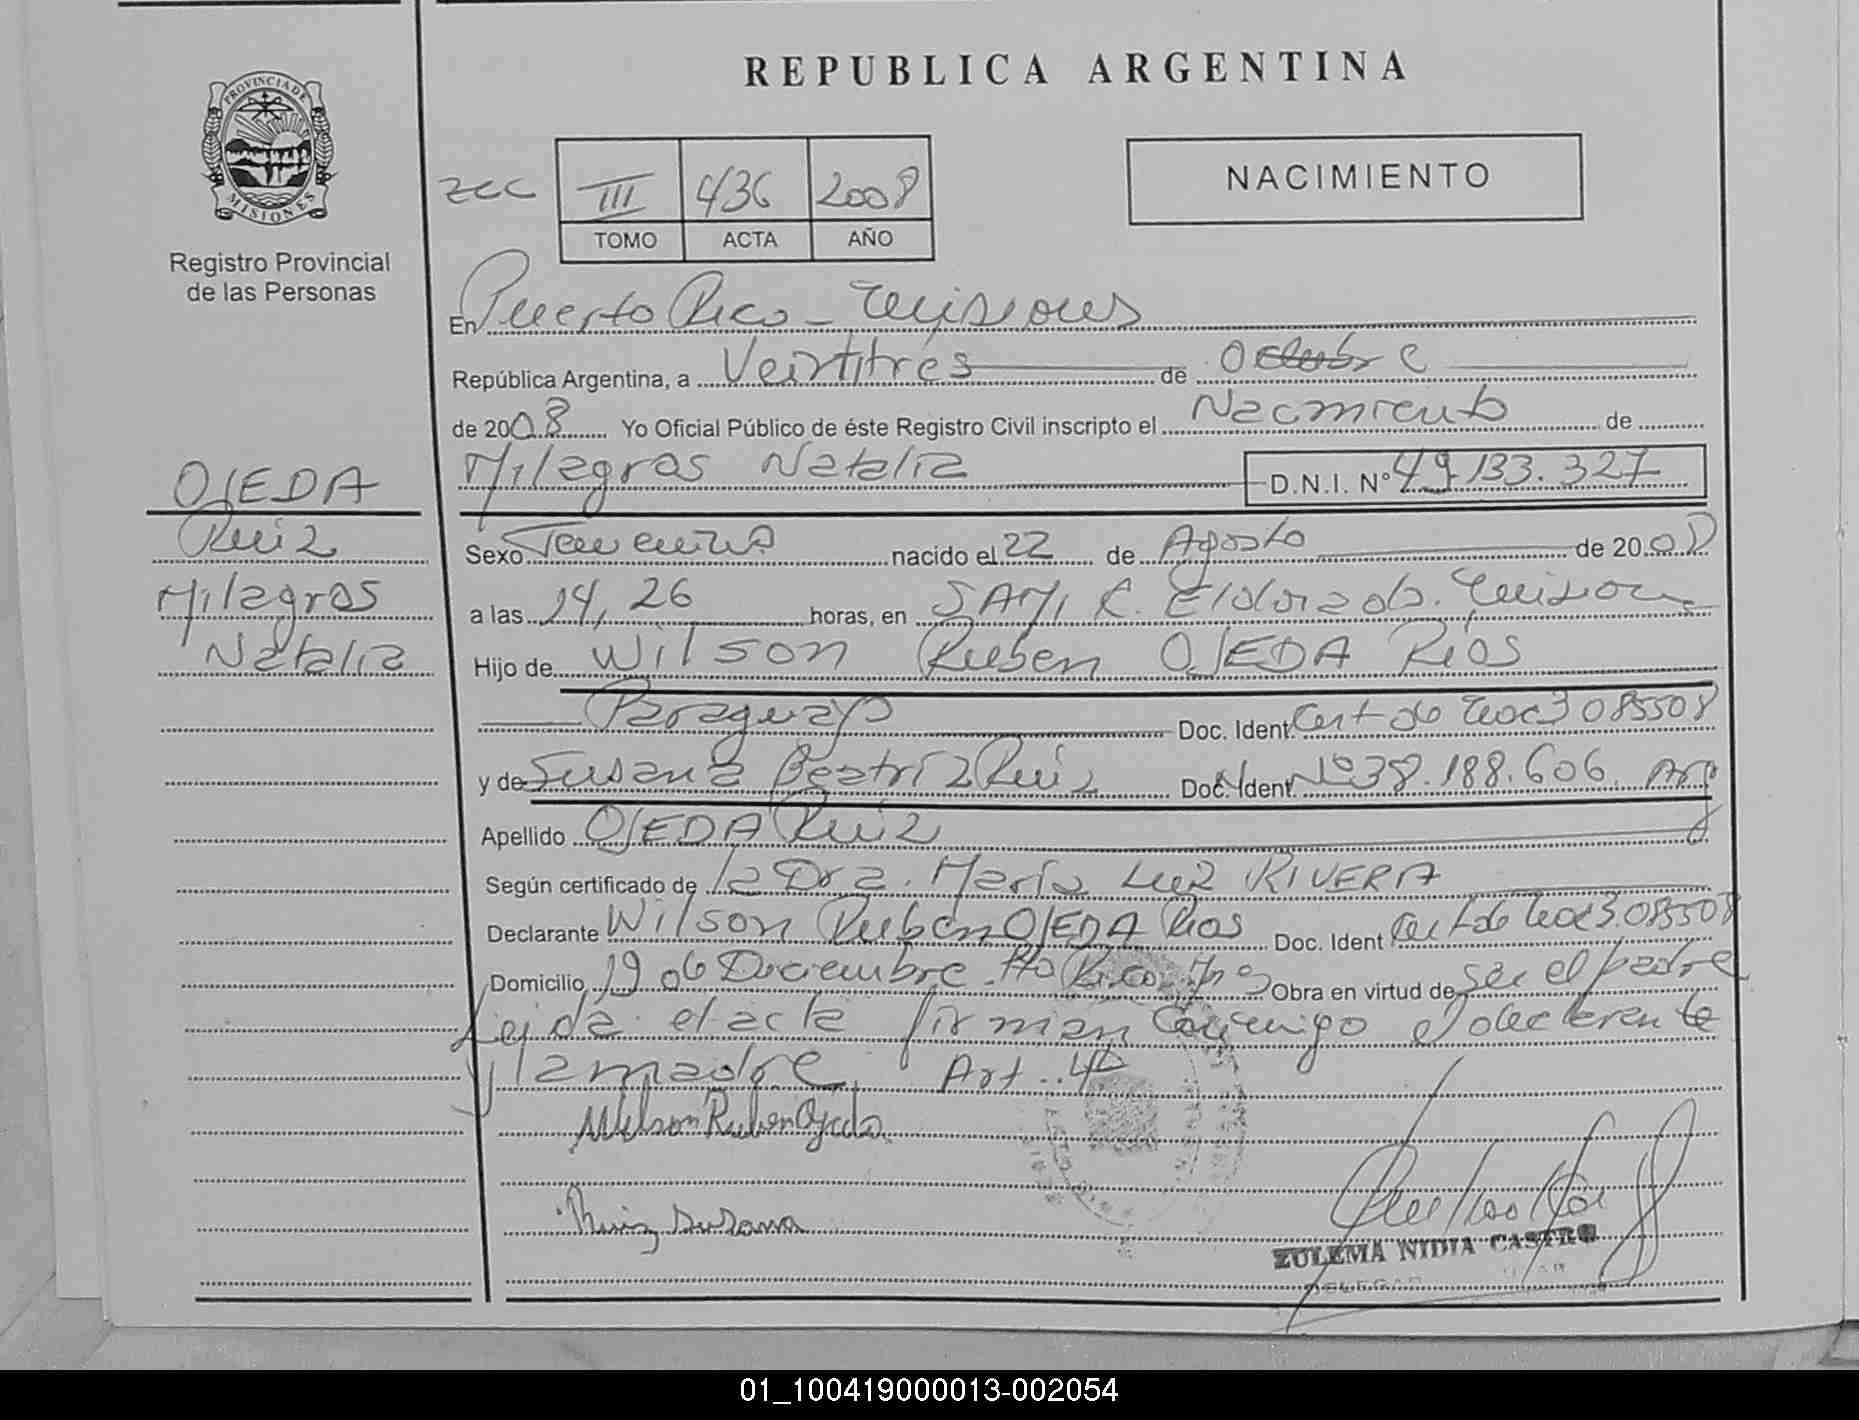 REPUBLICA ARGENTINA
PROVINCIA DE MISIONES
Registro Provincial
de las Personas
III 436 2008
TOMO ACTA AÑO
NACIMIENTO
En Puerto Rico - Misiones
República Argentina, a Veintitrés de Octubre
de 2008 Yo Oficial Público de éste Registro Civil inscripto el Nacimiento de
Milagros Natalia D.N.I. Nº 49.133.327
OJEDA
Ruiz
Milagros
Natalia
Sexo Femenino nacido el 22 de Agosto de 2008
a las 14,26 horas, en SAMIC. Eldorado. Misiones
Hijo de Wilson Ruben OJEDA Rios
Paraguayo Doc. Ident. Cert de Nac 3085508
y de Susana Beatriz Ruiz Doc. Ident. Nº 38.188.606. Arg
Apellido OJEDA Ruiz
Según certificado de la Dra. María Luz RIVERA
Declarante Wilson Ruben OJEDA Rios Doc. Ident Cert de Nac 3.085508
Domicilio 19 de Diciembre. Pto Rico Mnes Obra en virtud de ser el padre
Leída el acta firman conmigo el declarente
y la madre. Art. 40
Wilson Ruben Ojeda
Ruiz Susana
ZULEMA NIDIA CASTRO
01_100419000013-002054